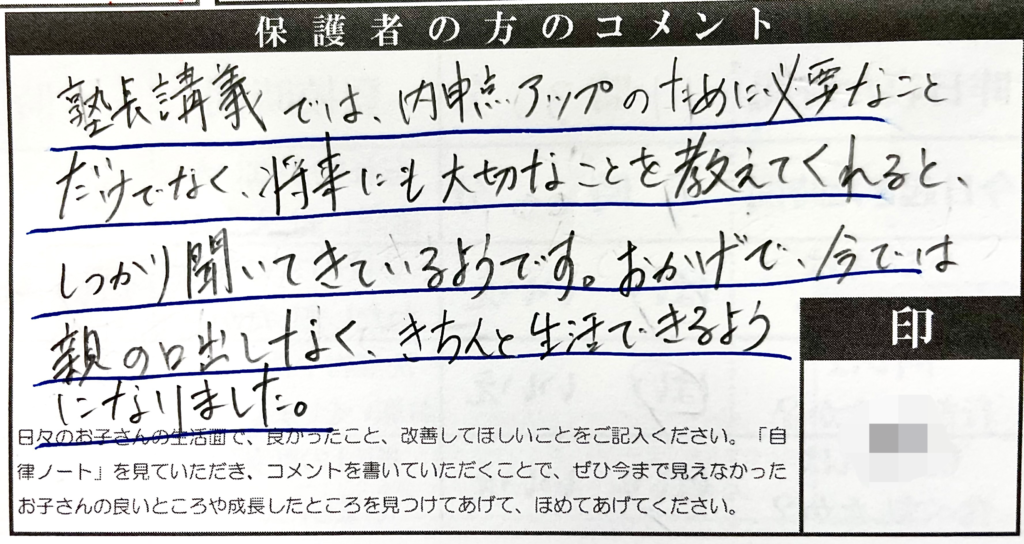 保護者の方のコメント
塾長講義では、内申点アップのために必要なこと
だけでなく、将来にも大切なことを教えてくれると、
しっかり聞いてきているようです。おかげで、今では
親の口出しなく、きちんと生活できるよう
になりました。
印
日々のお子さんの生活面で、良かったこと、改善してほしいことをご記入ください。「自
律ノート」を見ていただき、コメントを書いていただくことで、ぜひ今まで見えなかった
お子さんの良いところや成長したところを見つけてあげて、ほめてあげてください。